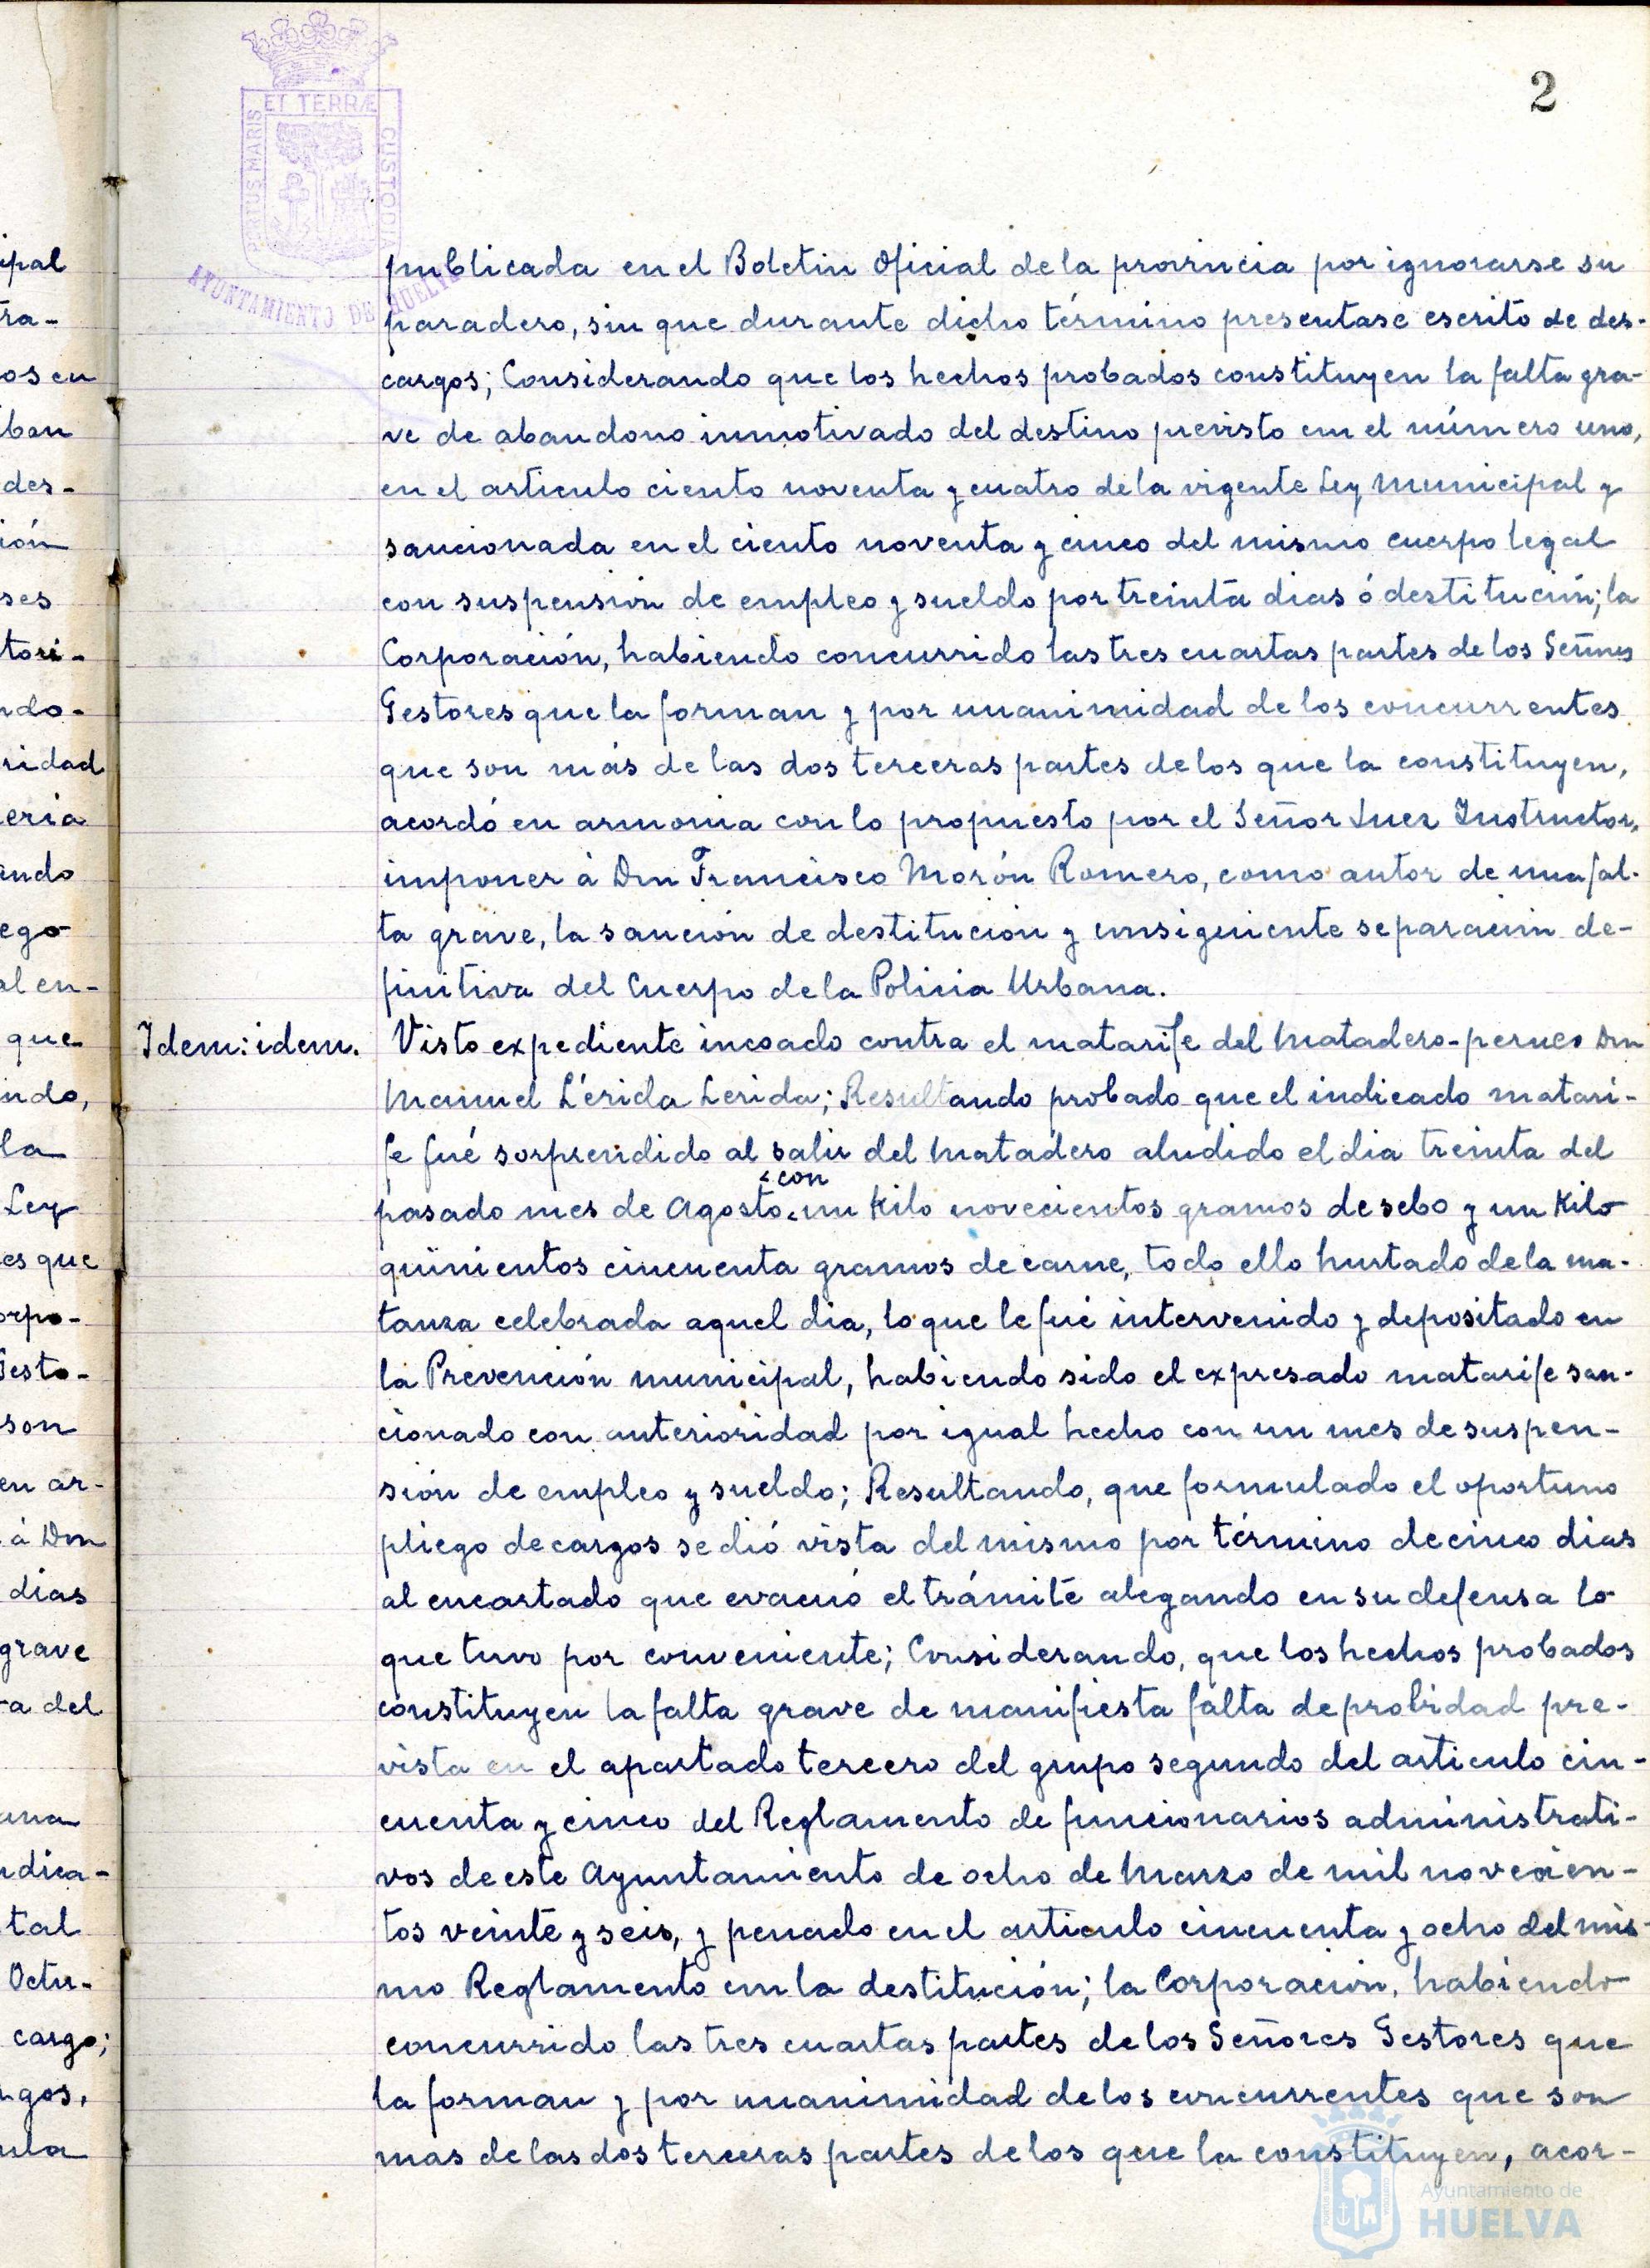 2
PORTUS MARIS ET TERRÆ CUSTODIA
AYUNTAMIENTO DE HUELVA
publicada en el Boletin Oficial de la provincia por ignorarse su
paradero, sin que durante dicho término presentase escrito de des-
cargos; Considerando que los hechos probados constituyen la falta gra-
ve de abandono inmotivado del destino previsto em el número uno,
en el articulo ciento noventa y cuatro de la vigente Ley Municipal y
sancionada en el ciento noventa y cinco del mismo cuerpo legal
con suspensión de empleo y sueldo por treinta dias ó destitución; la
Corporación, habiendo concurrido las tres cuartas partes de los Señores
Gestores que la forman y por unanimidad de los concurrentes
que son más de las dos terceras partes de los que la constituyen,
acordó en armonia con lo propuesto por el Señor Juez Instructor,
imponer à Don Francisco Morón Romero, como autor de una fal-
ta grave, la sanción de destitución y consiguiente separación de-
finitiva del Cuerpo de la Policia Urbana.
Idem: idem. Visto expediente incoado contra el matarife del Matadero-perneo Don
Manuel Lérida Lerida; Resultando probado que el indicado matari-
fe fué sorprendido al salir del Matadero aludido el dia treinta del
con
pasado mes de Agosto un Kilo novecientos gramos de sebo y un Kilo
quinientos cincuenta gramos de carne, todo ello hurtado de la ma-
tanza celebrada aquel dia, lo que le fué intervenido y depositado en
la Prevención municipal, habiendo sido el expresado matarife san-
cionado con anterioridad por igual hecho con un mes de suspen-
sión de empleo y sueldo; Resultando, que formulado el oportuno
pliego de cargos se dió vista del mismo por término de cinco dias
al encartado que evacuó el trámite alegando en su defensa lo
que tuvo por conveniente; Considerando, que los hechos probados
constituyen la falta grave de manifiesta falta de probidad pre-
vista en el apartado tercero del grupo segundo del articulo cin-
cuenta y cinco del Reglamento de funcionarios administrati-
vos de este Ayuntamiento de ocho de Marzo de mil novecien-
tos veinte y seis, y penado en el articulo cincuenta y ocho del mis-
mo Reglamento con la destitución; la Corporación, habiendo
concurrido las tres cuartas partes de los Señores Gestores que
la forman y por unanimidad de los concurrentes que son
mas de las dos terceras partes de los que la constituyen, acor-
ipal
tra-
os en
ban
des-
ión
ses
tori-
ndo-
ridad
eria
ando
ego
al en-
que
ndo,
la
Ley
es que
orpo-
Gesto-
son
en ar-
à Don
dias
grave
a del
una
ndica-
tal
Octu-
cargo;
rgos,
ula
Ayuntamiento de
HUELVA